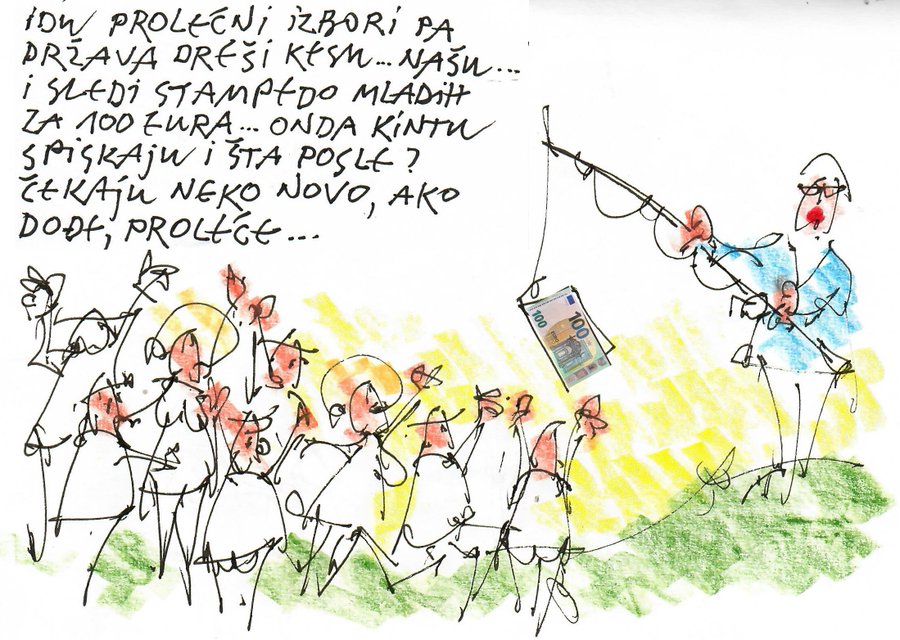 IDU PROLEĆNI IZBORI PA
DRŽAVA DREŠI KESU... NAŠU...
I SLEDI STAMPEDO MLADIH
ZA 100 EURA... ONDA KINTU
SPISKAJU I ŠTA POSLE?
ČEKAJU NEKO NOVO, AKO
DOĐE, PROLEĆE...
100
100